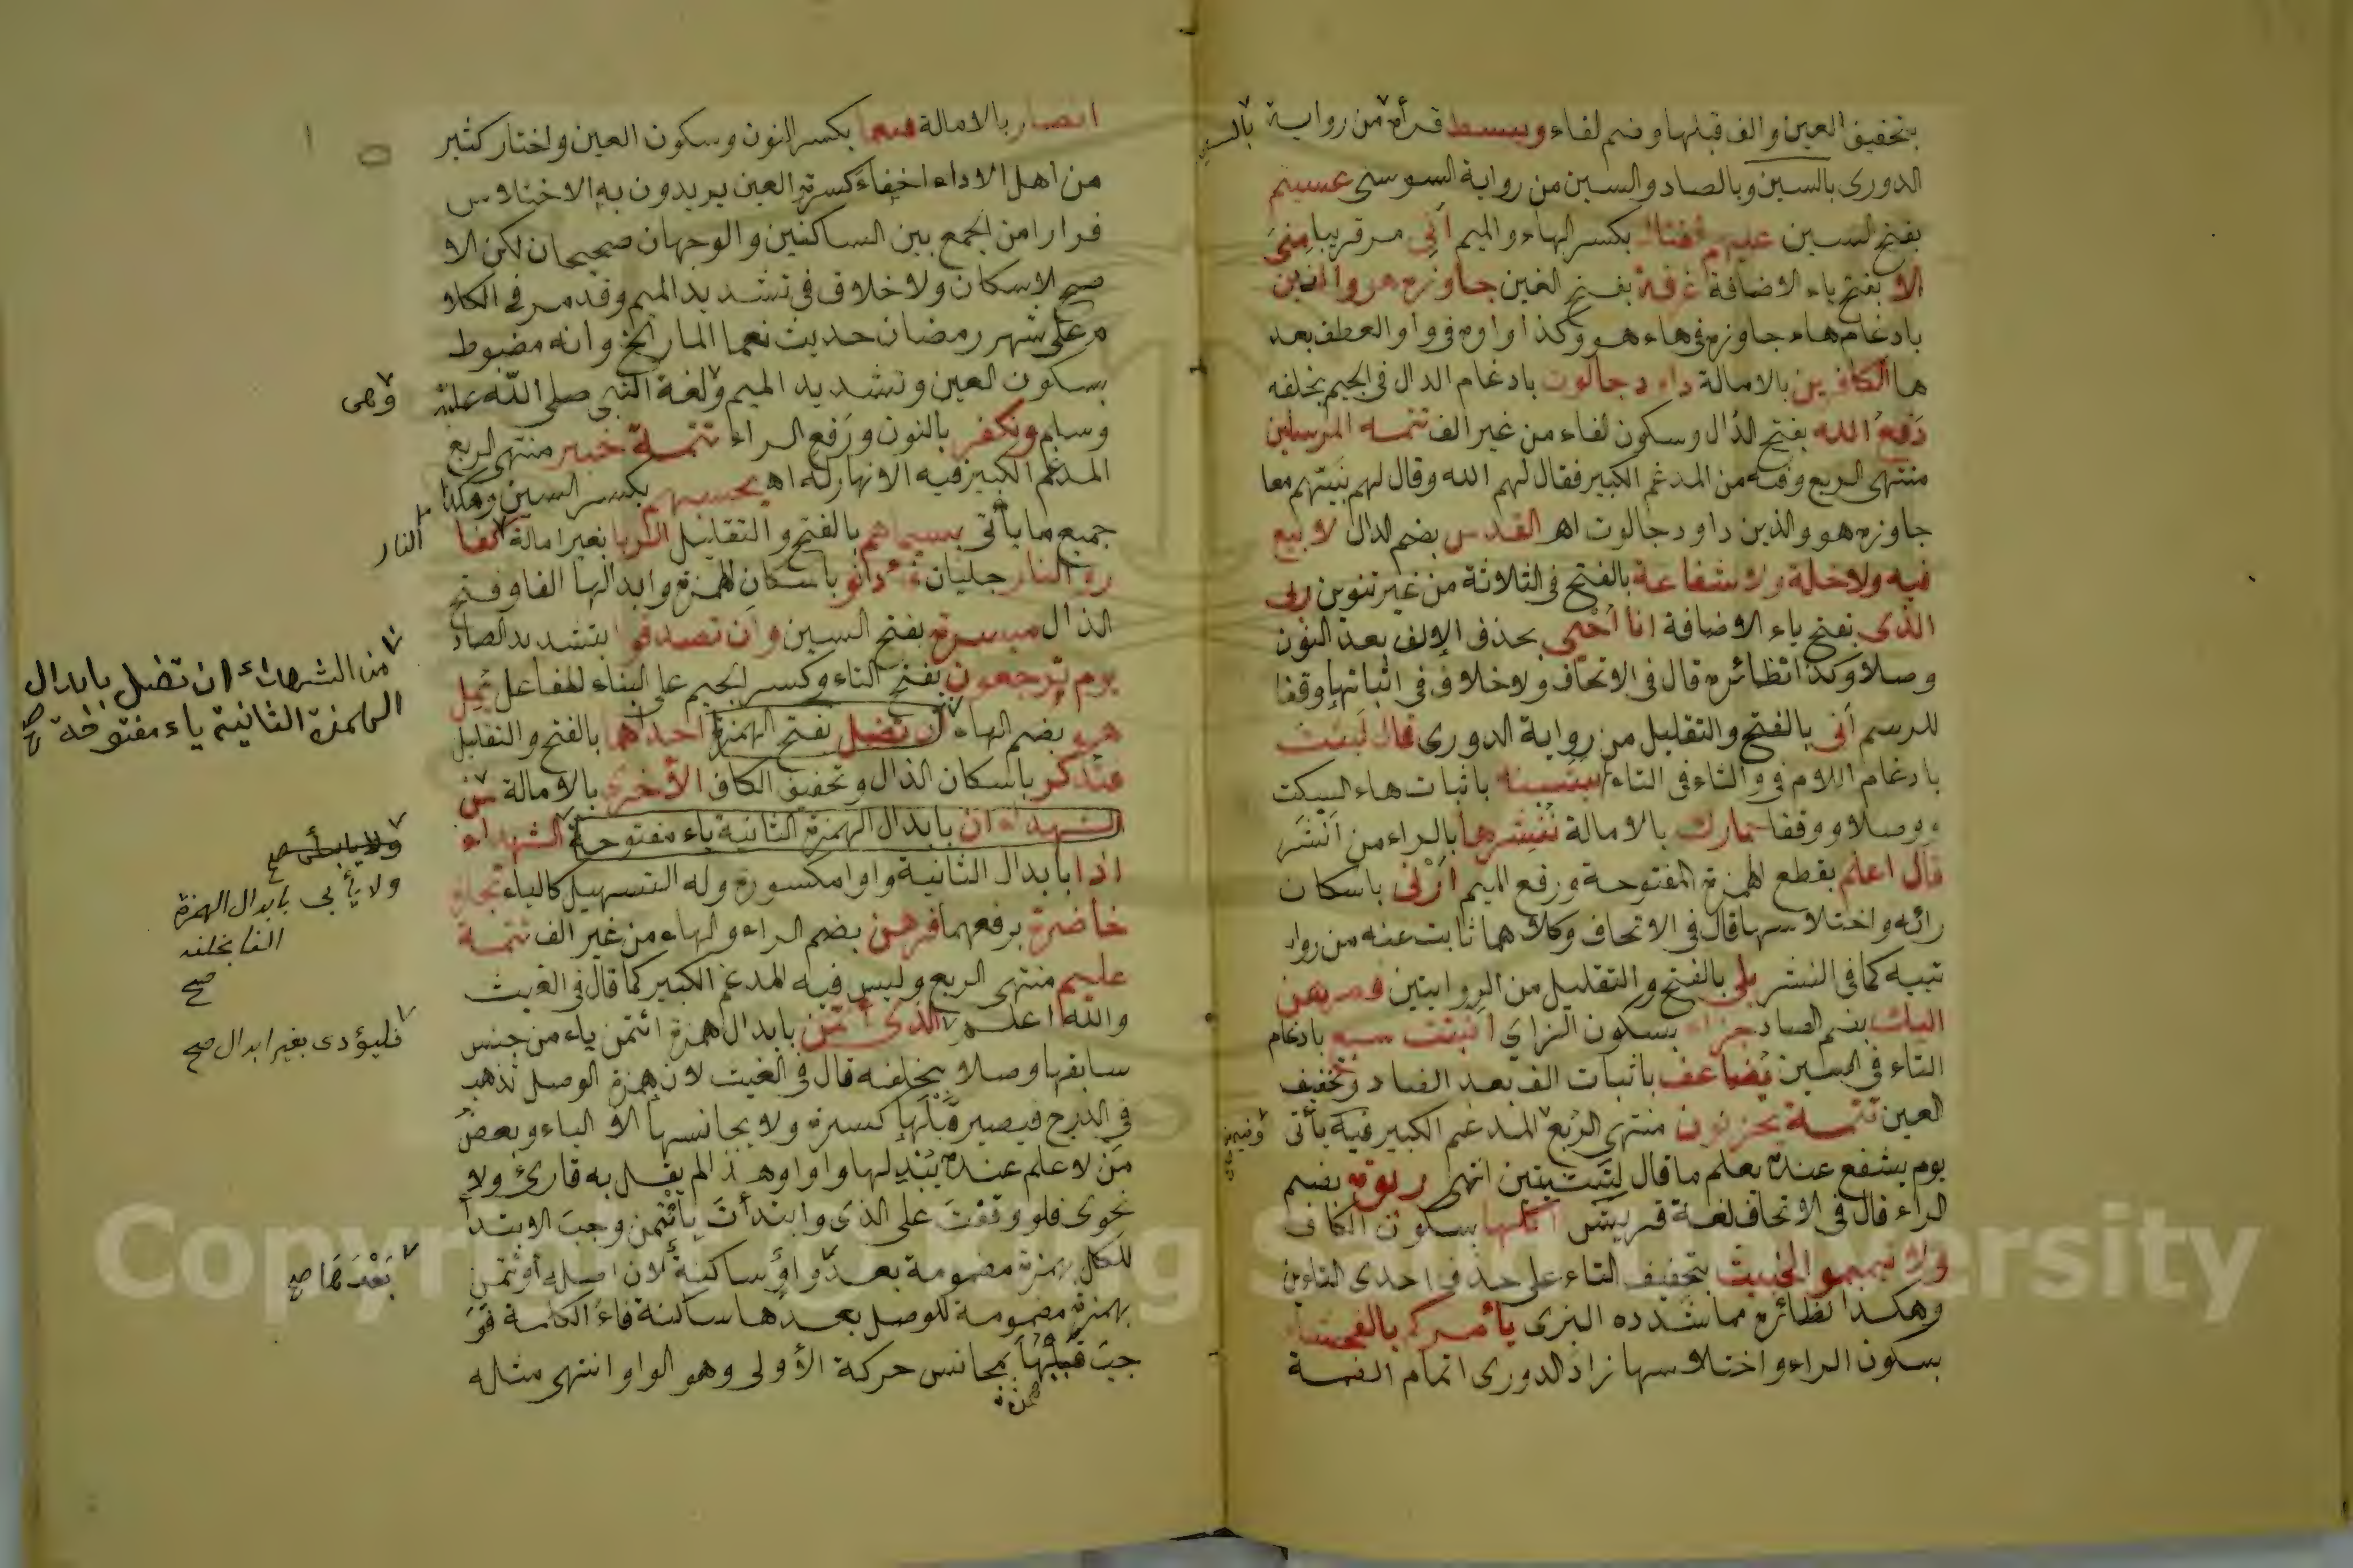 بتخفيف العين والف قبلها وضم لفاء ويبسط قرأه من رواية
بالسين
الدورى بالسين وبالصاد والسين من رواية السوسى عسيتم
بفتح لسين عليهم القتال بكسر الهاء والميم أنى مر قريبا منى
الا بفتح ياء الاضافة غرفة بفتح الغين جاوزه هو والذين
بادغام هاء جاوزه فى هاء هو وكذا واوه فى واو العطف بعد
ها الكافرين بالامالة داود جالوت بادغام الدال فى الجيم بخلفه
دَفعُ الله بفتح الدال وسكون لفاء من غير الف تتمه المرسلين
منتهى الربع وفيه من المدغم الكبير فقال لهم الله وقال لهم نبيّهم معا
جاوزه هو والذين داود جالوت اهـ القدس بضم الدال لا بيع
فيه ولا خلة ولا شفاعة بالفتح فى الثلاثة من غير تنوين ربى
الذى بفتح ياء الاضافة انا أُحْيِى بحذف الإلف بعد النون
وصلا وكذا نظائره قال فى الاتحاف ولا خلاف فى اثباتها وقفا
للرسم أنى بالفتح والتقليل من رواية الدورى قال لبثت
بادغام اللام فى والثاء فى التاء يتسنه باثبات هاء السكت
وصلا ووقفا حمارك بالامالة نُنْشِرها بالراء من اَنْشَرَ
قال اعلم بقطع الهمزة المفتوحة ورفع الميم أرْنى باسكان
رائه واختلاسها قال فى الاتحاف وكلاهما ثابت عنه من روا
تيه كما فى النشر بلى بالفتح والتقليل من الروايتين فصرهن
اليك بضم الصاد جزاء بسكون الزاي انبتت سبع بادغام
التاء فى السين يُضاعف باثبات الف بعد الضاد وتخفيف
العين تتمة يحزنون منتهى الربع المدغم الكبير فيه يأتى
يوم يشفع عنده يعلم ما قال لبثت يتبين انتهى ربوة بضم
الراء قال فى الاتحاف لغة قريش أكلها بسكون الكاف
ولا تيمموا الخبيث بتخفيف التاء على حذف احدى التاءين
وهكذا نظائره مما شدده البزى يأمركم بالفحشاء
بسكون الراء واختلاسها زاد الدورى اتمام الضمة
انصار بالامالة فنعما بكسر النون وسكون العين واختار كثير
من اهل الاداء اخفاءَ كسرةِ العين يريدون به الاختلاس
فرارا من الجمع بين الساكنين والوجهان صحيحان لكن الا
صح الاسكان ولا خلاف فى تشديد الميم وقد مر فى الكلا
م على شهر رمضان حديث نعما المال الخ وانه مضبوط
بسكون العين وتشديد الميم ولغة النبى صلى الله عليه
وهى
وسلم ونكفر بالنون ورَفع الراء تتمة خبير منتهى الربع
المدغم الكبير فيه الانهار له اهـ يحسبهم بكسر السين وهكذا
جميع ما يأتى بسيماهم بالفتح والتقليل الربا بغير امالة كفا
النار
ر النار جليان فأذنو باسكان الهمزة وابدالها الفا وفتح
الذال ميسرة بفتح السين وان تصدقوا بتشديد الصاد
يوم تَرجعون بفتح التاء وكسر الجيم على البناء للفاعل يُمِل
هو بضم الهاء ان تضل بفتح الهمزة احداهما بالفتح والتقليل
من الشهداء ان تضل بابدال
الهمزة الثانية ياء مفتوحة صح
فتذكر باسكان الذال وتخفيف الكاف الأخرى بالامالة من
الشهداء ان بابدال الهمزة الثانية ياء مفتوحة الشهداء
ولا يأبى صح
اذا بابدال الثانية واوا مكسورة وله التسهيل كالياء تجارة
ولا يأبى بابدال الهمزة
حاضرة برفعهما فرهن بضم الراء والهاء من غير الف تتمة
الفا بخلفه
صح
عليم منتهى الربع وليس فيه المدغم الكبير كما قال فى الغيث
والله اعلم الذى أئتمن بابدال همزة ائتمن ياء من جنس
فليؤدى بغير ابدال صح
سابقها وصلا بخلفه قال فى الغيث لان همزة الوصل تذهب
فى الدرج فيصير قبْلَها كسرة ولا يجانسها الا الياء وبعض
مَن لا علم عنده يُبْدِلها واوا وهذا لم يقل به قارئ ولا
نحوى فلو وقفت على الذى وابتدأتَ باؤتمن وجب الابتدأ
للكل بهمزة مضمومة بعد واوٍ ساكنة لان اصله أوتمن
بَعْدَهَا صح
بهمزة مضمومة للوصل بعدها ساكنة فاءَ الكلمة فوَ
جبَ قَلْبُهَا بمجانس حركة الأولى وهو الواو انتهى مثله
همزة